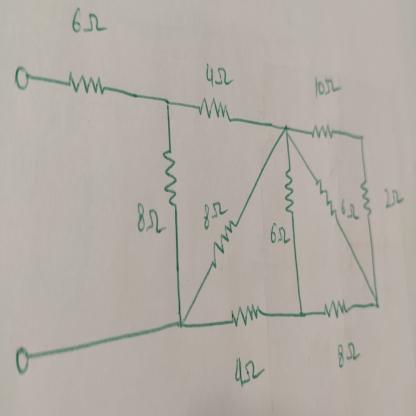 6Ω
4Ω
10Ω
8Ω
8Ω
6Ω
6Ω
2Ω
4Ω
8Ω